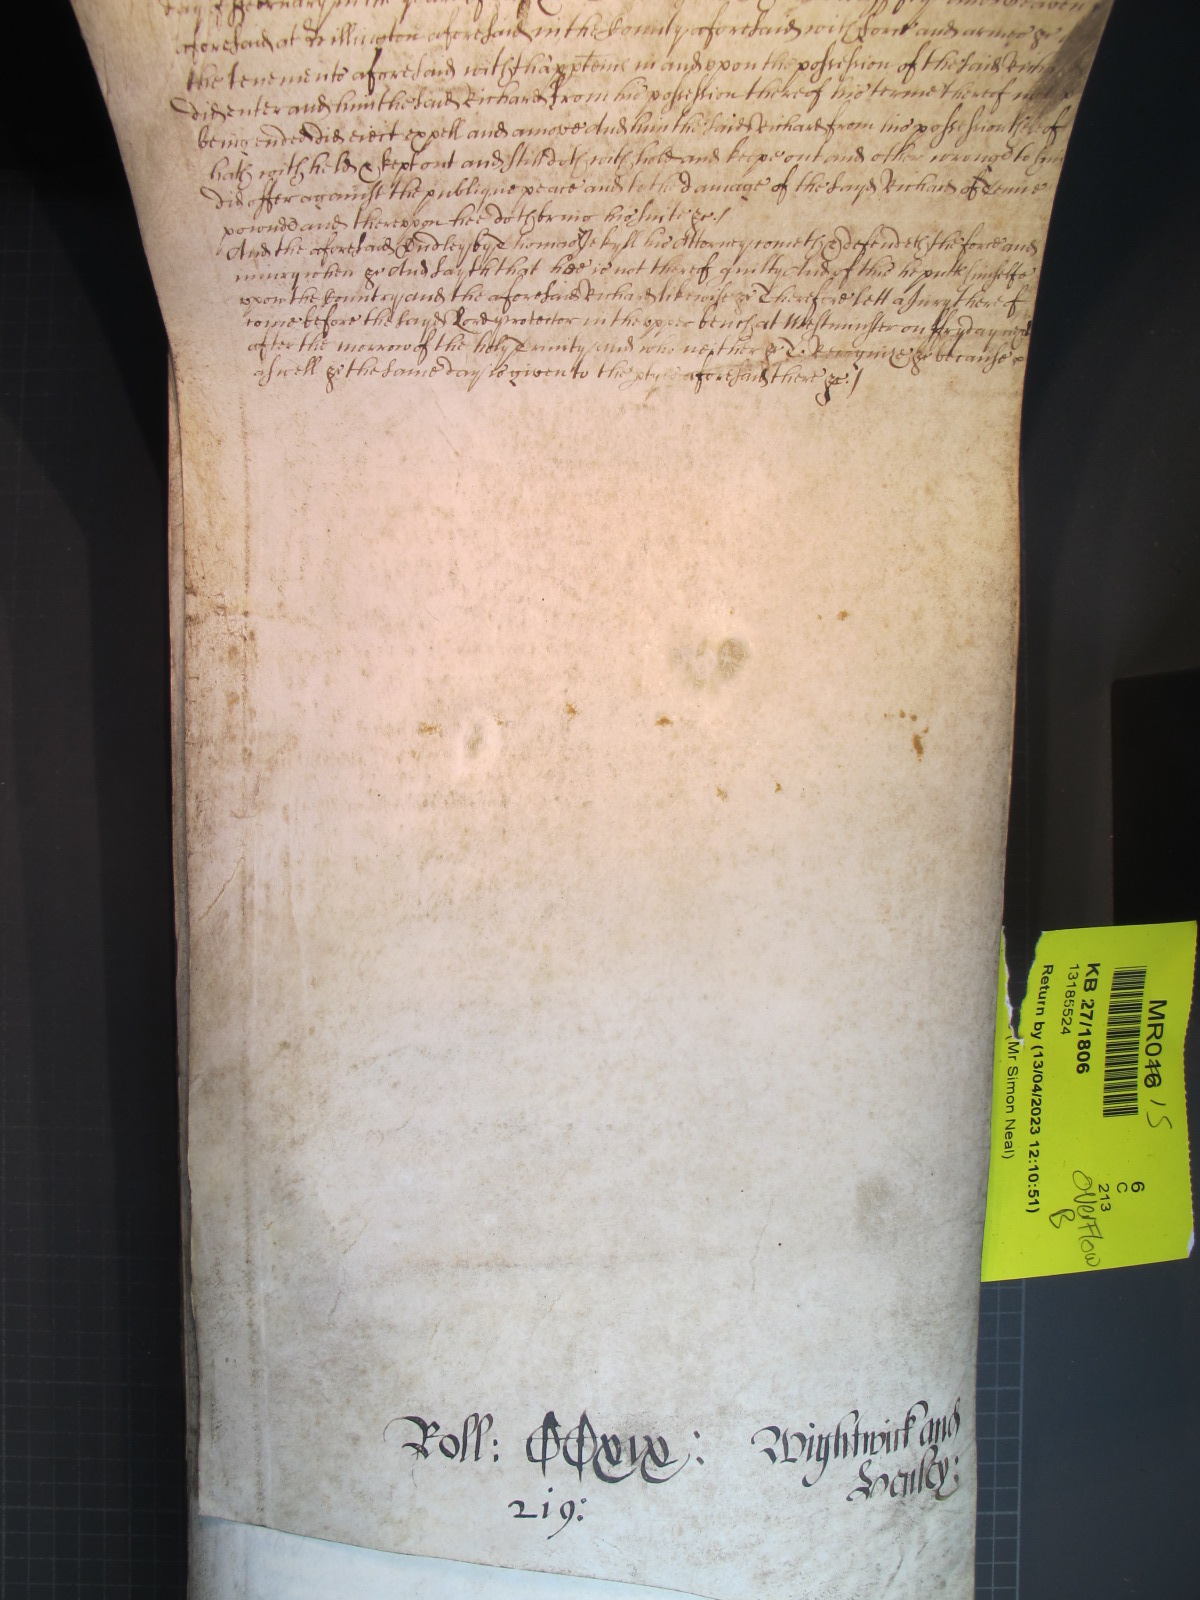 day of February in the yeare of
aforesaid at Billington aforesaid in the County aforesaid with force and armes &c
the tenements aforesaid with thapptenncs in and upon the possession of the said Richard
did enter and him the said Richard from his possession thereof his terme thereof not
being ended did eiect expell and amove And him the said Richard from his possession thereof
hath with held & kept out and still doth with hold and keepe out and other wrongs to him
did offer against the publique peace and to the damage of the sayd Richard of Tenne
pownds and thereupon hee doth bring his suite &c /
And the aforesaid Dudley by Thomas Jekyll his Attorney cometh & defendeth the force and
iniury when &c And sayth that hee is not thereof guilty And of this he putts himselfe
upon the Country and the aforesaid Richard likewise &c Therefore lett a Jury thereof
come before the sayd Lord Protector in the upper bench at Westminster on ffryday next
after the morrow of the holy Trinity and who neither &c To Recognize &c because
aswell &c the same day is given to the ptyes aforesaid there &c /
Roll: CCxix: Wightwick and
219:
MR046 15
KB 27/1806
13185524
Return by (13/04/2023 12:10:51)
(Mr Simon Neal)
6
C
213
overflow
B